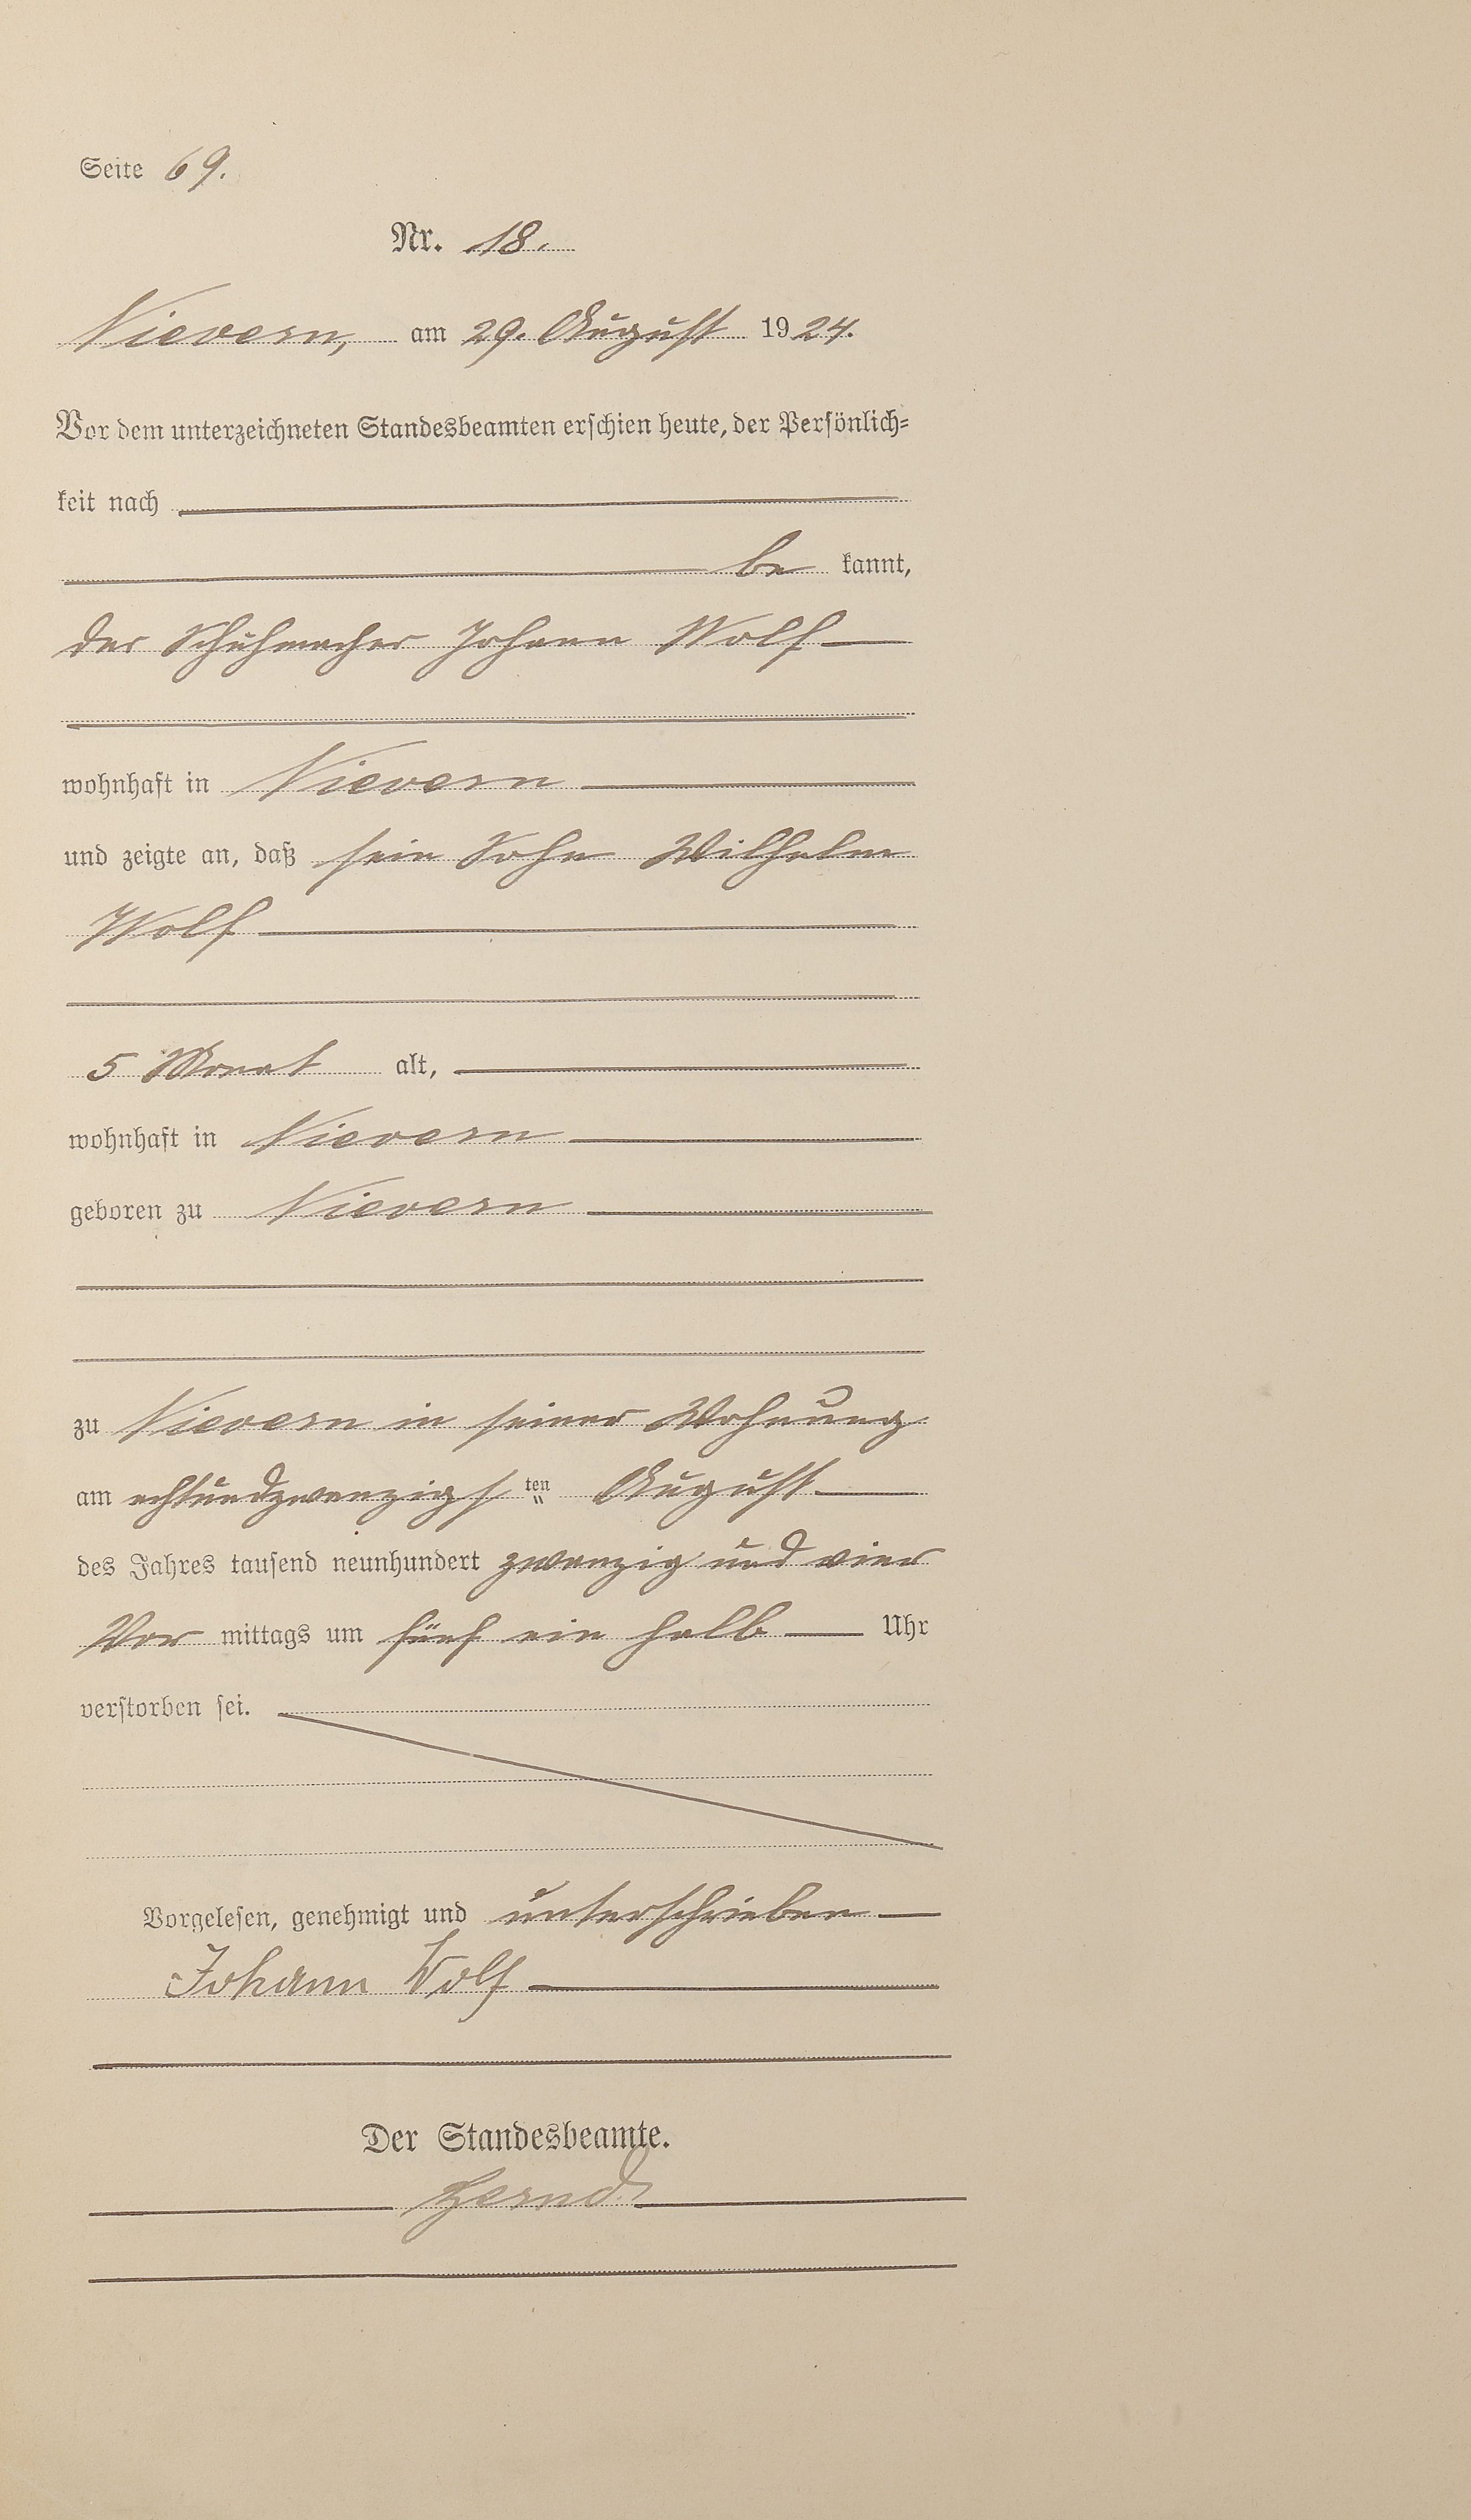 Seite 69.
Nr. 18.
Nievern, am 29. August 1924.
Vor dem unterzeichneten Standesbeamten erschien heute, der Persönlich-
keit nach
be kannt,
der Schuhmacher Johann Wolf
wohnhaft in Nievern
und zeigte an, daß sein Sohn Wilhelm
Wolf
5 Monat alt,
wohnhaft in Nievern
geboren zu Nievern
zu Nievern in seiner Wohnung
am achtundzwanzigsten August
des Jahres tausend neunhundert zwanzig und vier
Vor mittags um fünf ein halb Uhr
verstorben sei.
Vorgelesen, genehmigt und unterschrieben
Johann Wolf
Der Standesbeamte.